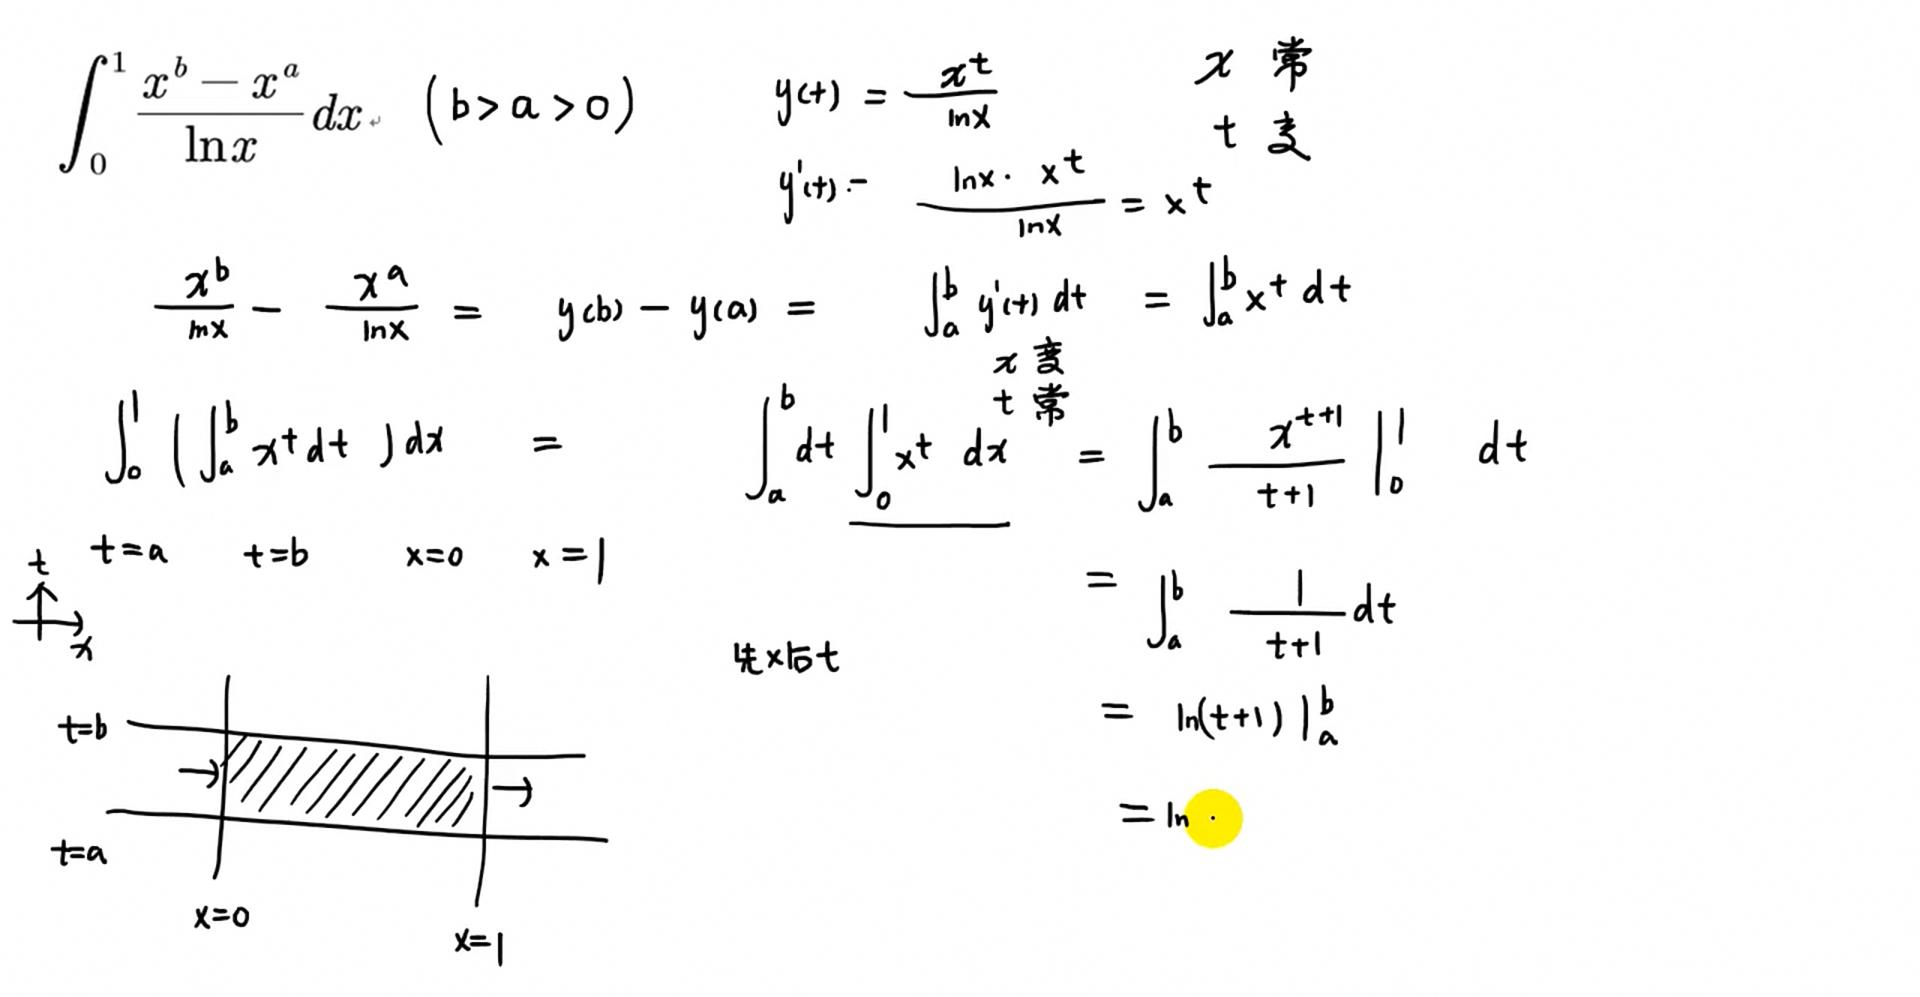 ∫₀¹ (x^b − x^a)/(ln x) dx (b>a>0)
y(t) = x^t/lnx x 常
t 变
y'(t) = (lnx · x^t)/lnx = x^t
x^b/lnx − x^a/lnx = y(b) − y(a) = ∫_a^b y'(t) dt = ∫_a^b x^t dt
x 变
t 常
∫₀¹ (∫_a^b x^t dt) dx = ∫_a^b dt ∫₀¹ x^t dx = ∫_a^b x^(t+1)/(t+1) |₀¹ dt
t=a t=b x=0 x=1
= ∫_a^b 1/(t+1) dt
t
x
先x后t
= ln(t+1) |_a^b
t=b
= ln
t=a
x=0
x=1